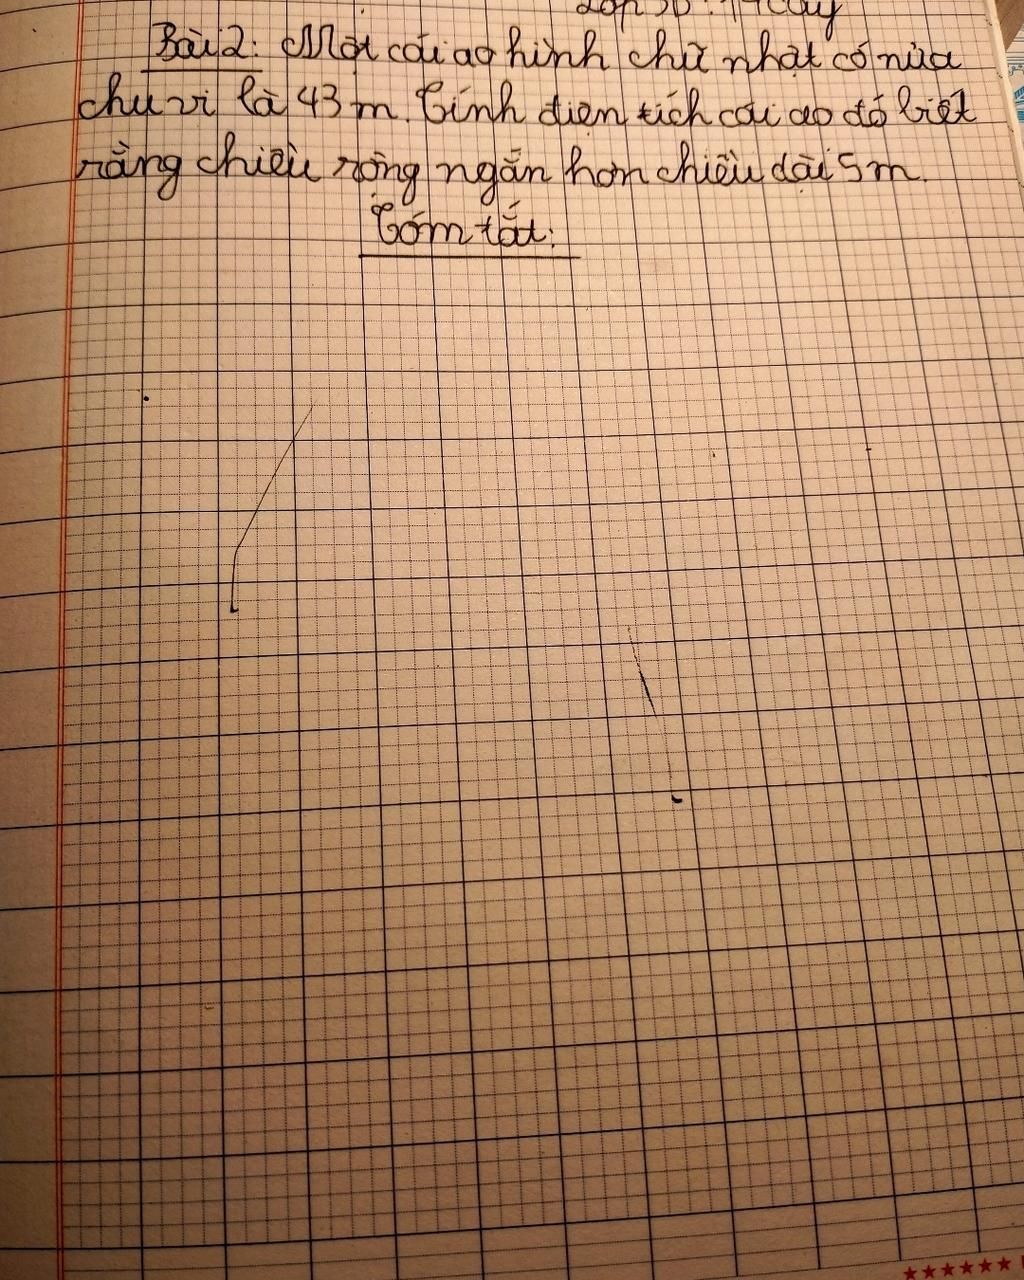 Bài 2: Một cái ao hình chữ nhật có nửa
chu vi là 43 m. Tính diện tích cái ao đó biết
rằng chiều rộng ngắn hơn chiều dài 5 m.
Tóm tắt: